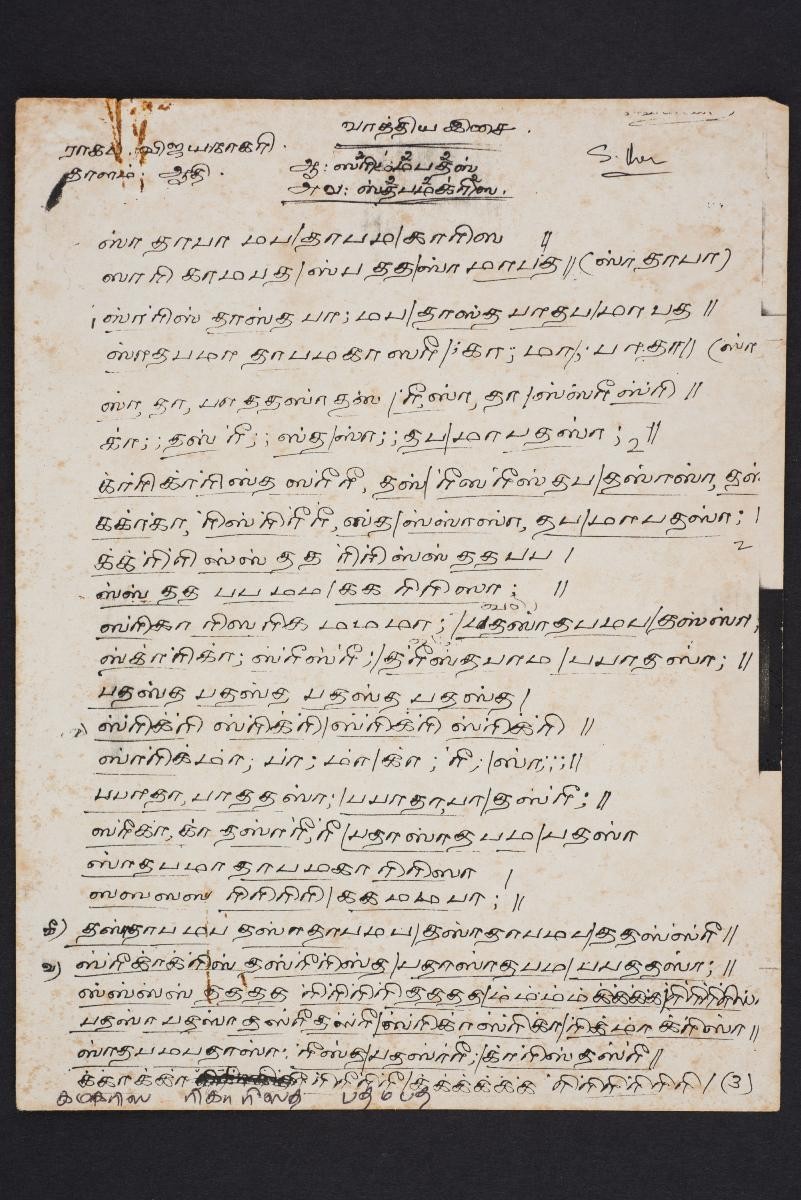 வாத்திய இசை.
ராகம். விஜயநாகரி.
தாளம்: ஆதி.
ஆ: ஸ்ரி₂க₂ம₂பத₂ஸ்
அவ: ஸ்த₂பம₂க்ரி₂ஸ.
ஸா தாபா மப/தாபம/காரிஸ //
ஸாரி காமபத/ஸ்ப தத/ஸா மாபத// (ஸா, தாபா)
ஸ்ாரிஸ் தாஸ்த பா; மப/தாஸ்த பாதப/மா பத //
ஸ்ாதபமா தாபமகா ஸரீ/;கா; மா/; பாதா// (ஸா
ஸ்ா, தா, பா ததஸ்ாதஸ் /ரீ,ஸா, தா/ஸ்ஸ்ரீஸ்ரி //
க்ா;; தஸ் ரீ;; ஸ்த/ஸ்ா;; தப/மாபதஸா; 2 //
க்ா்ரிக்ா்ரிஸ்த ஸ்ரீரீ, தஸ்/ரீஸ்ரீஸ்தப/தஸ்ாஸா, தஸ்
கக்ாகா, ரிஸ்ரிரீரீ, ஸ்த/ஸ்ஸ்ாஸா, தப/மாபதஸா; / 2
க்க்ரிரி ஸ்ஸ் தத ரிரிஸ்ஸ் ததபப /
ஸ்ஸ் தத பபமம/கக ரிரிஸா; //
ஸ்ரிகா ரிஸரிக மமமா; /பதஸ்ாதபமப/தஸ்ஸா;
ஸ்க்ாரிகா; ஸ்ரீஸ்ரீ;/த்ரீஸ்தபாம/பபாதஸா; //
பதஸ்த பதஸ்த பதஸ்த பதஸ்த/
ஸ்ரிக்ரி ஸ்ரிக்ரி/ஸ்ரிக்ரி ஸ்ரிக்ரி //
ஸ்ாரிக்மா; பா; மா/கா; ரீ;/ஸா;;;//
பபாதா,பாததஸா;/பபாதா,பா/தஸ்ரீ; //
ஸ்ரீகா,கா தஸ்ாரீ,ரீ/பதாஸாதபம/பதஸா
ஸ்ாதபமா தாபமகா ரிரிஸா /
ஸஸஸஸ ரிரிரிரி/ககமமபா; //
கீ) தஸ்தாபமப தஸ்ாதாபமப/தஸ்ாதாபமப/ததஸ்ஸ்ரீ//
வ) ஸ்ரீக்ாக்ரிஸ் தஸ்ரீரிஸ்த/பதாஸாதபம/பபததஸா; //
ஸ்ஸ்ஸ்ஸ் தததத ரிரிரிரி தததத/ம்ம்ம்ம்க்க்க்க்/ரிரிரிரிஸ்.
பதஸா பதஸா தஸ்ரீதஸ்ரீ/ஸ்ரிகாஸ்ரிகா/ரிக்மா க்ரிஸா//
ஸ்ாதபமபதாஸா; ரீஸ்த/பதஸ்ாரீ;/க்ாரிஸ்தஸ்ரீ//
க்காக்கா ரிரிரீரீ/க்க்க்க்க்க ரிரிரிரிரிரி/ (3)
கமகரிஸ ரிகாரிஸ்த பதமபத